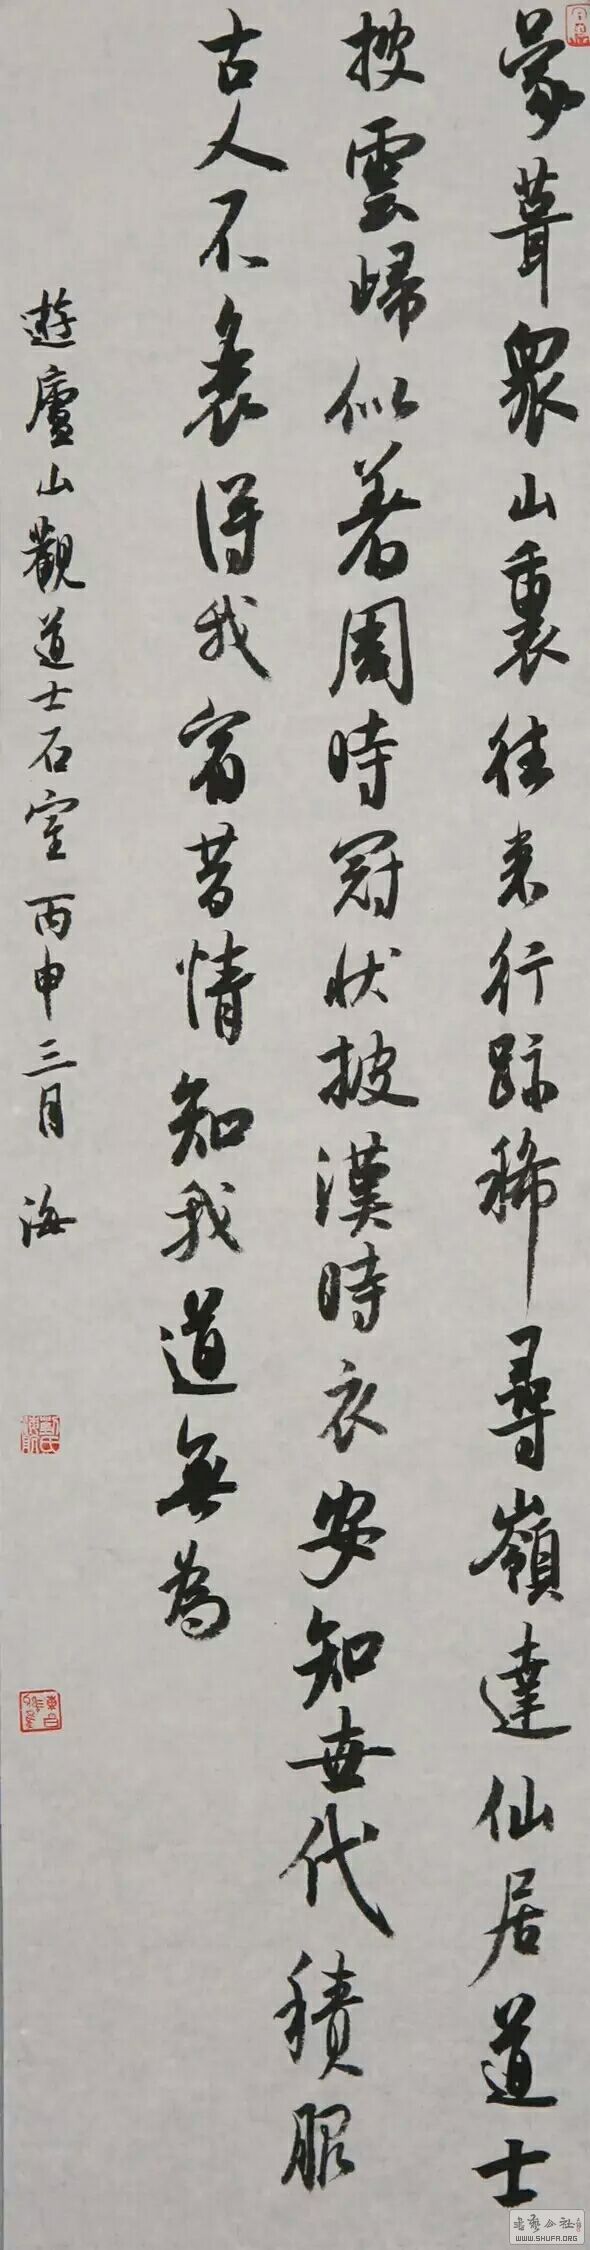 蒙葺眾山裏往来行跡稀尋嶺達仙居道士
披雲歸似著周時冠狀披漢時衣安知世代積服
古人不衰得我宿昔情知我道無為
遊廬山觀道士石室 丙申三月 海
書藝公社
WWW.SHUFA.ORG